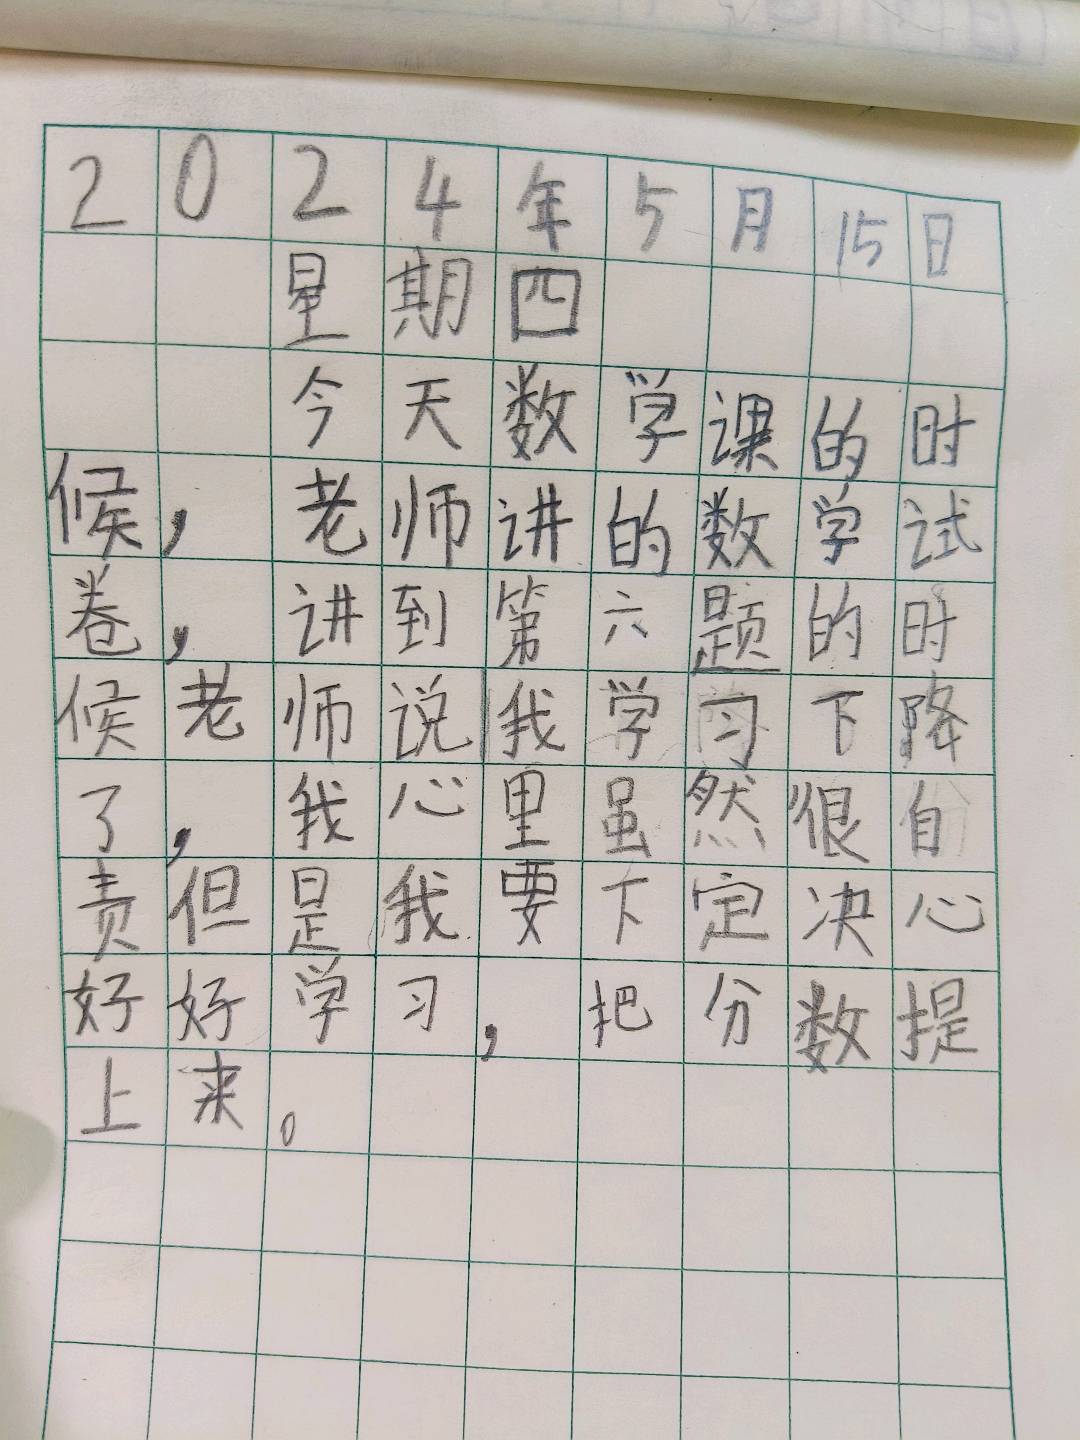 2024年5月15日
星期四
今天数学课的时
候，老师讲的数学试
卷，讲到第六题的时
候老师说我学习下降
了，我心里虽然很自
责但是我要下定决心
好好学习，把分数提
上来。